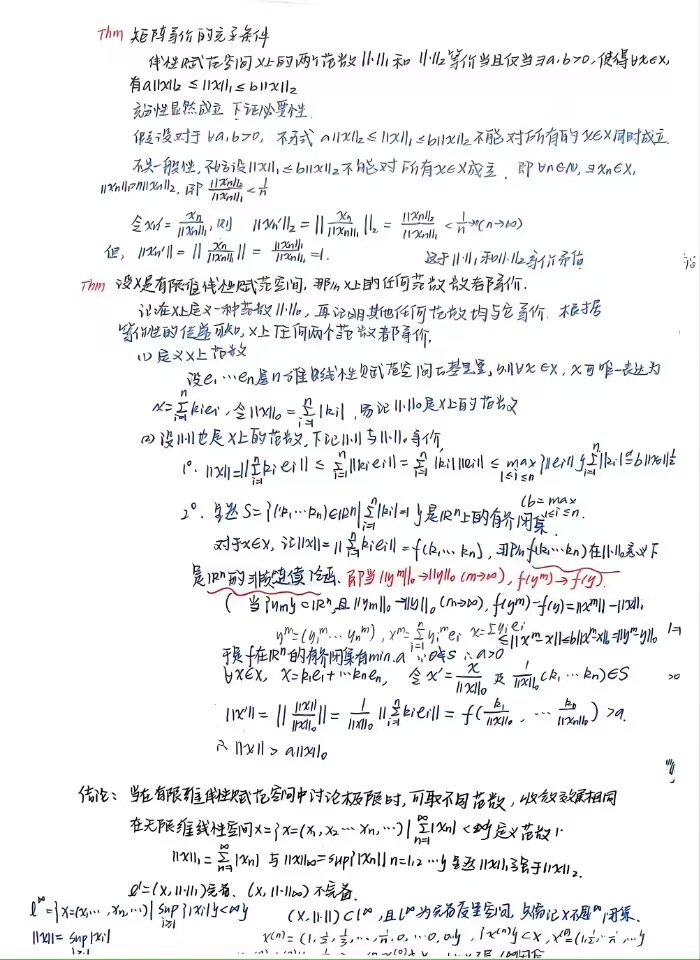 Thm 矩阵等价的充要条件
线性赋范空间X上的两个范数||·||₁和||·||₂等价当且仅当∃a,b>0,使得∀x∈X,
有a||x||₂ ≤ ||x||₁ ≤ b||x||₂
充分性显然成立 下证必要性.
假设对于∀a,b>0, 不等式 a||x||₂ ≤ ||x||₁ ≤ b||x||₂不能对所有的x∈X同时成立.
不失一般性,不妨设||x||₁ ≤ b||x||₂不能对所有x∈X成立. 即∀n∈N,∃xₙ∈X,
||xₙ||₁>n||xₙ||₂,即 ||xₙ||₂/||xₙ||₁ < 1/n
令xₙ'= xₙ/||xₙ||₁,则 ||xₙ'||₂ = ||xₙ/||xₙ||₁||₂ = ||xₙ||₂/||xₙ||₁ < 1/n →0(n→∞)
但, ||xₙ'|| = ||xₙ/||xₙ||₁|| = ||xₙ||₁/||xₙ||₁ =1. 这与||·||₁和||·||₂等价矛盾
Thm 设X是有限维线性赋范空间,那么X上的任何范数都等价.
记在X上定义一种范数||·||₀,再证明其他任何范数均与它等价. 根据
等价性的传递可知,X上任何两个范数都等价.
(1) 定义X上范数
设e₁…eₙ是n维线性赋范空间的基,则∀x∈X,x可唯一表达为
x=Σⁿᵢ₌₁kᵢeᵢ,令||x||₀=Σⁿᵢ₌₁|kᵢ|,易记||·||₀是X上的范数
(2) 设||·||也是X上的范数,下记||·||与||·||₀等价,
1°. ||x||=||Σⁿᵢ₌₁kᵢeᵢ|| ≤ Σⁿᵢ₌₁||kᵢeᵢ|| = Σⁿᵢ₌₁|kᵢ|||eᵢ|| ≤ max₁≤ᵢ≤ₙ{||eᵢ||}Σⁿᵢ₌₁|kᵢ|≜b||x||₀
(b=max 1≤i≤n
2°. S={(k₁,…kₙ)∈Rⁿ|Σⁿᵢ₌₁|kᵢ|=1}是Rⁿ上的有界闭集.
对于x∈X,记||x||=||Σⁿᵢ₌₁kᵢeᵢ||=f(k₁,…kₙ),则f(k₁,…kₙ)在||·||₀意义下
是Rⁿ的非负连续泛函. 即当||yᵐ||₀→||y||₀(m→∞),f(yᵐ)→f(y).
( 当{yₘ}⊂Rⁿ,且||yₘ||₀→||y||₀(m→∞),f(yᵐ)-f(y)=||xᵐ||-||x||,
yᵐ=(y₁ᵐ…yₙᵐ), xᵐ=Σⁿᵢ₌₁yᵢᵐeᵢ x=Σyᵢeᵢ ≤||xᵐ-x||≤b||xᵐ-x||₀=||yᵐ-y||₀
于是f在Rⁿ的有界闭集有min.a ∴a>0
∀x∈X, x=k₁e₁+…kₙeₙ, 令x'=x/||x||₀ 及 1/||x||₀(k₁,…kₙ)∈S
||x'||=||x/||x||₀||=1/||x||₀||Σⁿᵢ₌₁kᵢeᵢ||=f(k₁/||x||₀,…kₙ/||xₙ||₀)>a.
∴||x||>a||x||₀
结论: 当在有限维线性赋范空间中讨论极限时,可取不同范数,收敛效果相同
在无限维线性空间X={x=(x₁,x₂…xₙ,…)|Σ^∞ₙ₌₁|xₙ|<∞}定义范数
||x||₁=Σ^∞ₙ₌₁|xₙ| 与||x||∞=sup{|xₙ||n=1,2…} ||x||₁ ||x||₂.
l¹=(X,||·||₁)完备. (X,||·||∞)不完备.
l^∞={x=(x₁,…,x₂,…)|sup i≥1 |xᵢ|<∞} (X,||·||)⊂l^∞,且l^∞为完备度量空间,只需记X不是l^∞闭集.
||x||=sup|xᵢ| x⁽ⁿ⁾=(1,1/2,1/3,…,1/n,0,…0,…), {x⁽ⁿ⁾}⊂X, x⁽⁰⁾=(1,1/2,…1/n,…)